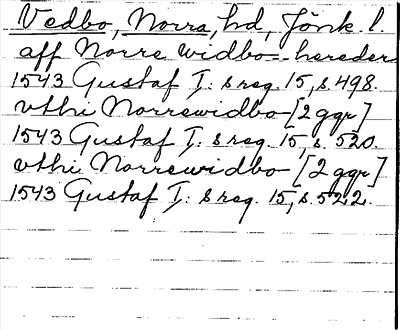 Vedbo, Norra, hd, Jönk. l.
aff Norre widbo-hereders
1543 Gustaf I: s reg. 15, s. 498.
vthi Norrewidbo [2 ggr]
1543 Gustaf I: s reg. 15, s. 520.
vthi Norrewidbo [2 ggr]
1543 Gustaf I: s reg. 15, s. 522.